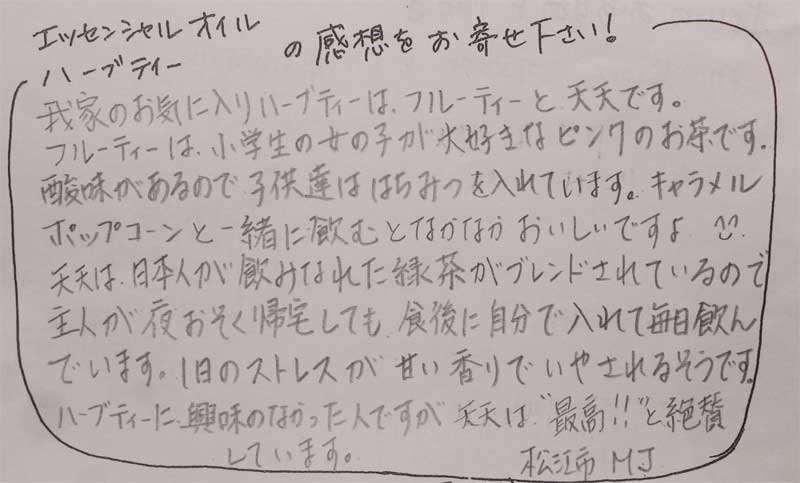 エッセンシャル オイル
ハーブティー の感想をお寄せ下さい!
我家のお気に入りハーブティーは、フルーティーと、天天です。
フルーティーは、小学生の女の子が大好きなピンクのお茶です。
酸味があるので子供達ははちみつを入れています。キャラメル
ポップコーンと一緒に飲むとなかなかおいしいですよ
天天は、日本人が飲みなれた緑茶がブレンドされているので
主人が夜おそく帰宅しても、食後に自分で入れて毎日飲ん
でいます。1日のストレスが甘い香りでいやされるそうです。
ハーブティーに興味のなかった人ですが天天は"最高!!"と絶賛
しています。
松江市 MJ